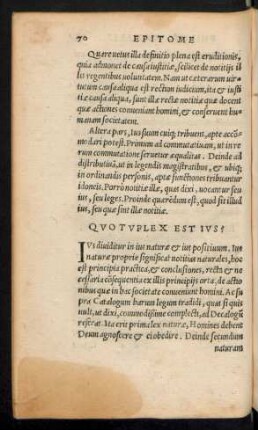 70 EPITOME
Quare uetus illa definitio plena est eruditionis,
quia admonet de causa iustitiæ, scilicet de notitijs il
lis regentibus uoluntatem. Nam ut cæterarum uir-
tutum causa aliqua est rectum iudicium, ita & iusti
tiæ causa aliqua, sunt illæ rectæ notitiæ quæ docent
quæ actiones conueniant homini, & conseruent hu-
manam societatem.
Altera pars, Ius suum cuiq; tribuens, apte accõ-
modari potest. Primum ad commutatiuam, ut in re
rum commutatione seruetur æqualitas. Deinde ad
distributiuã, ut in legendis magistratibus, & ubiq;
in ordinandis personis, aptæ functiones tribuantur
idoneis. Porrò notitiæ illæ, quas dixi, uocantur seu
ius, seu leges. Proinde quærẽdum est, quid sit illud
ius, seu quæ sint illæ notitiæ.
QVOTVPLEX EST IVS?
IVs diuiditur in ius naturæ & ius positiuum. Ius
naturæ proprie significat notitias naturales, hoc
est principia practica, & conclusiones, rectà & ne
cessaria cõsequentia ex illis principijs orta, de actio
nibus quæ in hac societate conueniant homini. Ac su
pra Catalogum harum legum tradidi, quas si quis
uult, ut dixi, commodissime complecti, ad Decalogũ
referat Ita erit prima lex naturæ, Homines debent
Deum agnoscere & ei obedire. Deinde secundum
naturam